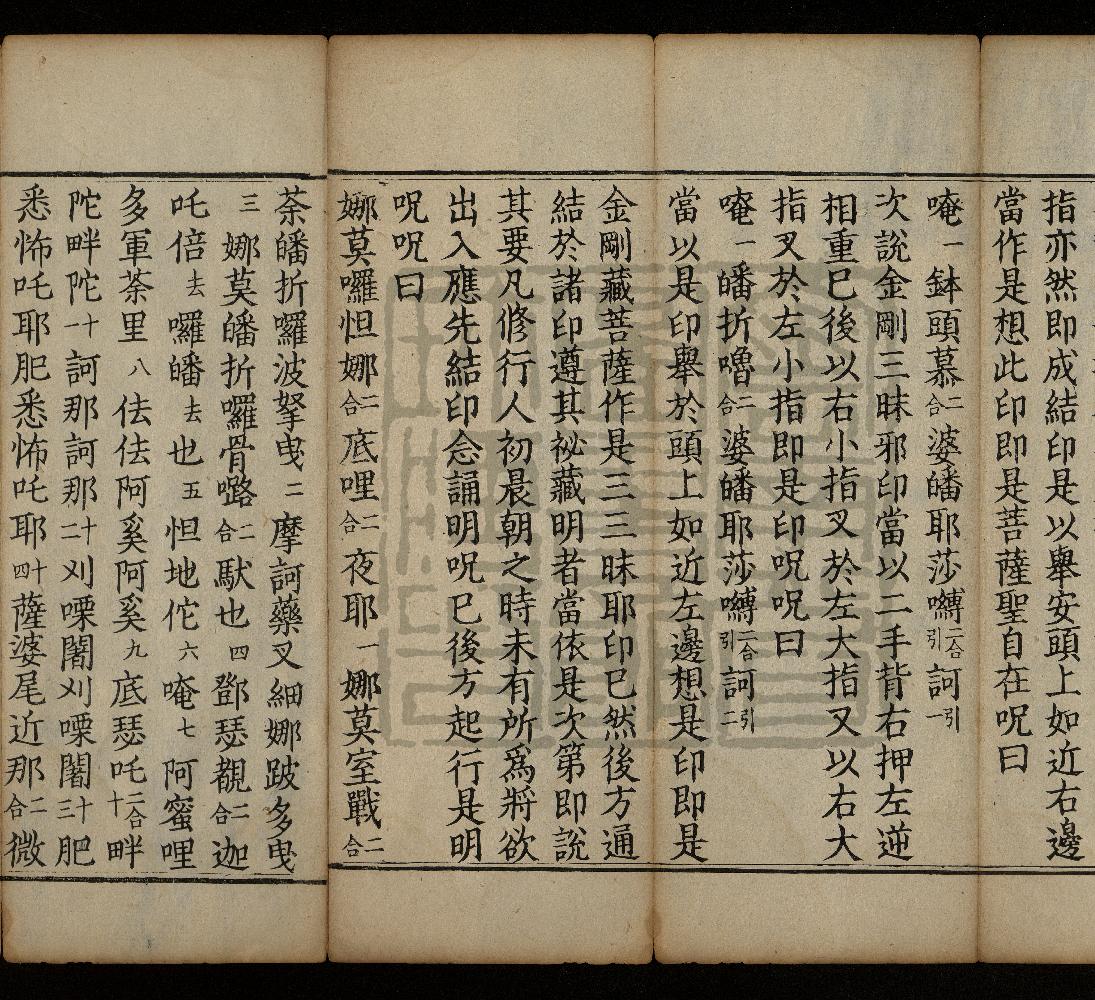 指亦然即成結印是以舉安頭上如近右邊
當作是想此印即是菩薩聖自在呪曰
唵一鉢頭慕二合婆皤耶莎嚩二合引訶引一
次說金剛三昧邪印當以二手背右押左逆
相重已後以右小指叉於左大指又以右大
指叉於左小指即是印呪呪曰
唵一皤折嚕二合婆皤耶莎嚩二合引訶引二
當以是印舉於頭上如近左邊想是印即是
金剛藏菩薩作是三三昧耶印已然後方通
結於諸印遵其祕藏明者當依是次第即說
其要凡修行人初晨朝之時未有所為將欲
出入應先結印念誦明呪已後方起行是明
呪呪曰
娜莫囉怛娜二合底哩二合夜耶一娜莫室戰二合
荼皤折囉波拏曳二摩訶藥叉細娜跛多曳
三娜莫皤折囉骨嚕二合馱也四鄧瑟覩二合迦
吒倍去囉皤去也五怛地佗六唵七阿蜜哩
多軍荼里八佉佉阿奚阿奚九底瑟吒二合十畔
陀畔陀十一訶那訶那十二刈㗚闍刈㗚闍十三肥
悉怖吒耶肥悉怖吒耶十四薩婆尾近那二合微